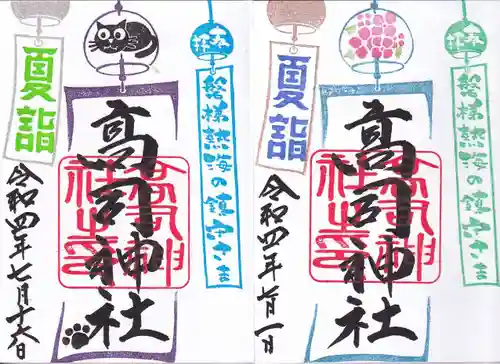 奉拝
磐梯熱海の鎮守さま
高司神社
夏詣
令和四年七月十六日
奉拝
磐梯熱海の鎮守さま
高司神社
夏詣
令和四年七月一日